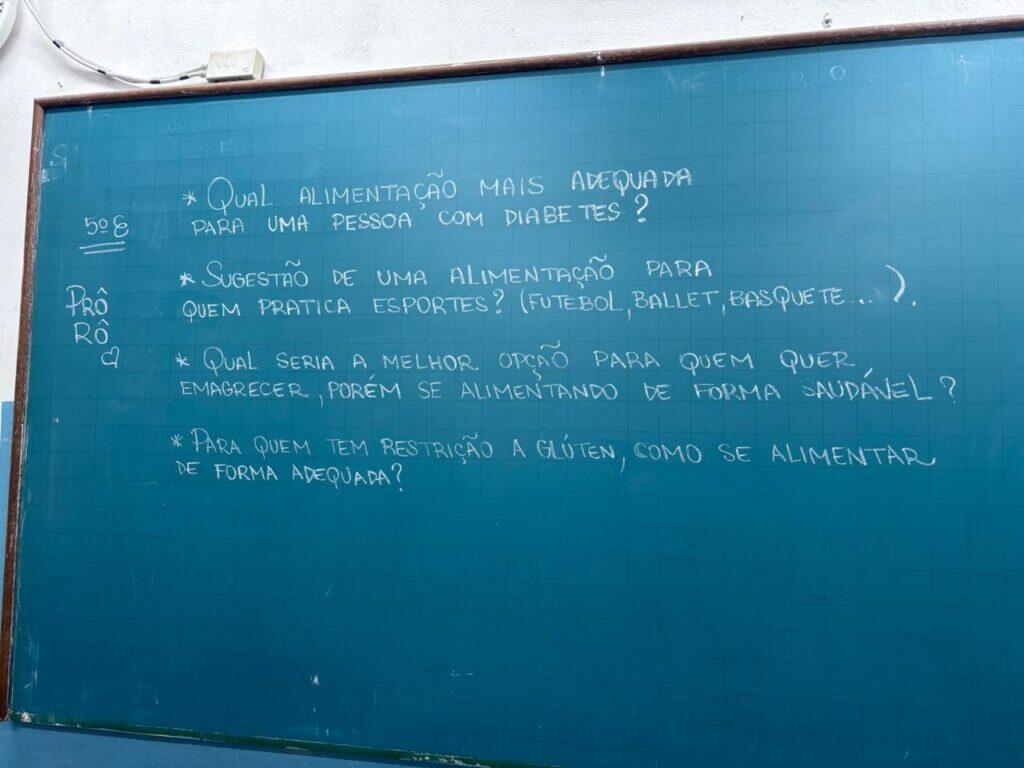 * QUAL ALIMENTAÇÃO MAIS ADEQUADA
PARA UMA PESSOA COM DIABETES?
5º E
* SUGESTÃO DE UMA ALIMENTAÇÃO PARA
QUEM PRATICA ESPORTES? (FUTEBOL, BALLET, BASQUETE...).
PRÔ
RÔ
* QUAL SERIA A MELHOR OPÇÃO PARA QUEM QUER
EMAGRECER, PORÉM SE ALIMENTANDO DE FORMA SAUDÁVEL?
* PARA QUEM TEM RESTRIÇÃO A GLÚTEN, COMO SE ALIMENTAR
DE FORMA ADEQUADA?